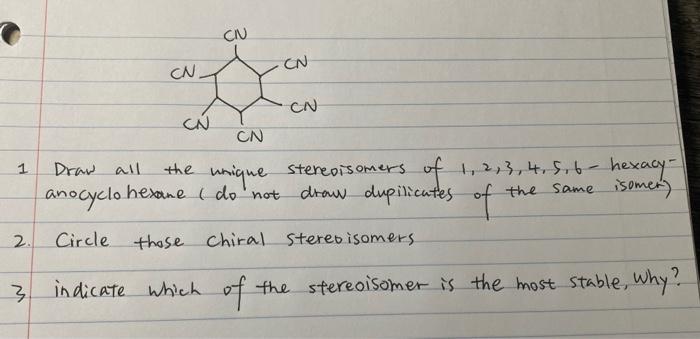 CN
CN CN
CN CN
CN
1 Draw all the unique stereoisomers of 1,2,3,4,5,6-hexacy-
anocyclohexane (do not draw dupilicates of the same isomer)
2. Circle those chiral stereoisomers
3. indicate which of the stereoisomer is the most stable, Why?